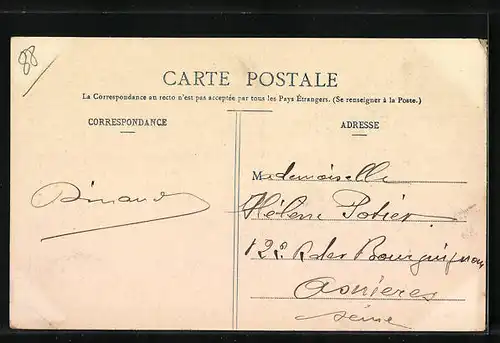 88
CARTE POSTALE
La Correspondance au recto n'est pas acceptée par tous les Pays Étrangers. (Se renseigner à la Poste.)
CORRESPONDANCE
ADRESSE
Mademoiselle
Hélène Potier
R des Bourguignons
Asnieres
Seine